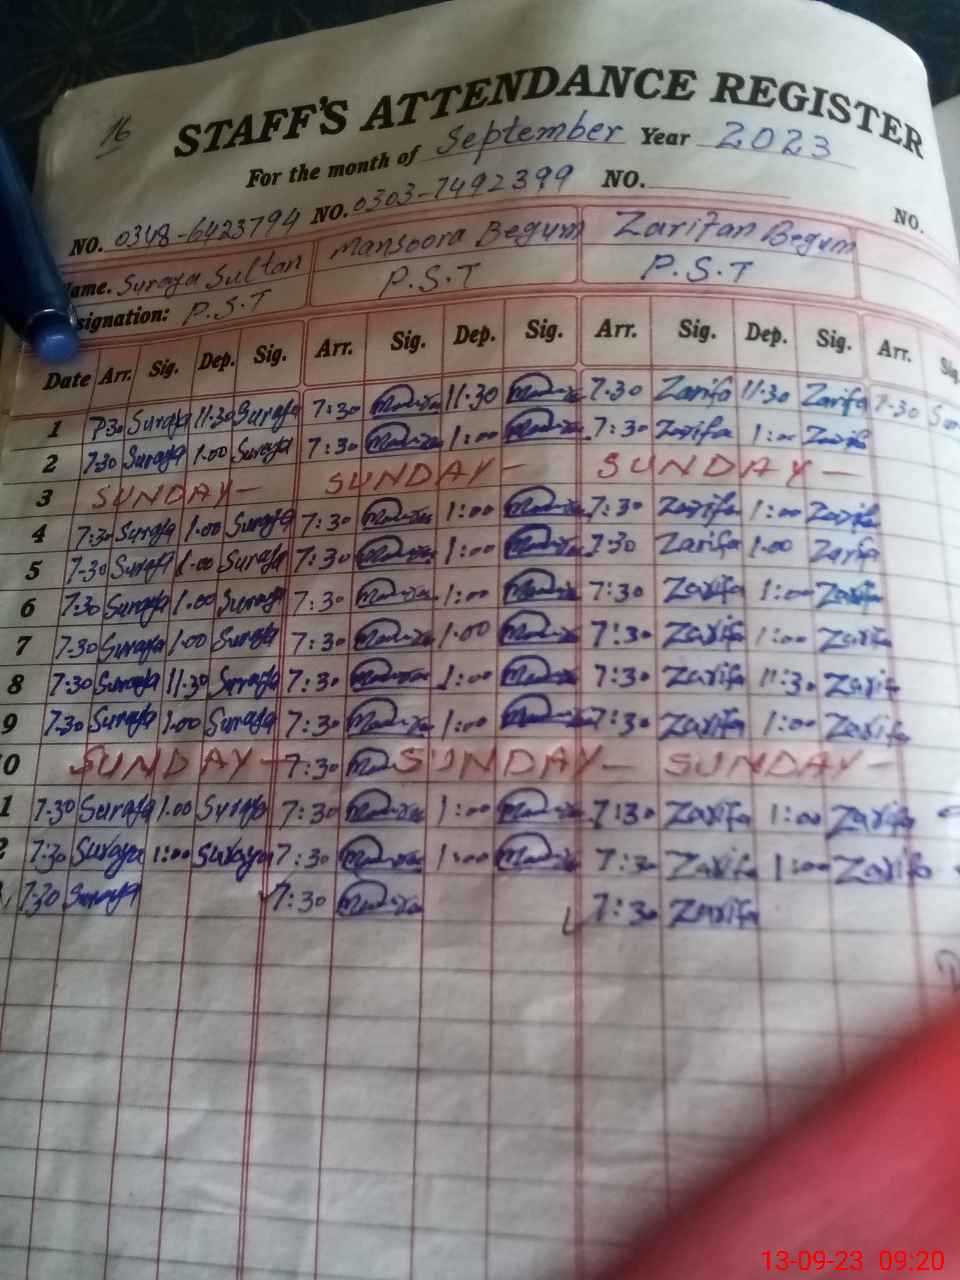 16
STAFF'S ATTENDANCE REGISTER
For the month of September Year 2023
NO. 0348-6423794 NO. 0303-7492399 NO. NO.
ame. Suraya Sultan Mansoora Begum Zarifan Begum
signation: P.S.T P.S.T P.S.T
Date Arr. Sig. Dep. Sig. Arr. Sig. Dep. Sig. Arr. Sig. Dep. Sig. Arr. Sig
1 7:30 Suraya 11.30 Suraya 7:30 11.30 7.30 Zarifa 11.30 Zarifa 7-30
2 7.30 Suraya 1.00 Suraya 7:30 1:00 7:30 Zarifa 1:00 Zarifa
3 SUNDAY- SUNDAY- SUNDAY-
4 7:30 Suraya 1.00 Suraya 7:30 1:00 7:30 Zarifa 1:00 Zarifa
5 7-30 Suraya 1.00 Suraya 7:30 1:00 7:30 Zarifa 1.00 Zarifa
6 7:30 Suraya 1.00 Suraya 7:30 1:00 7:30 Zarifa 1:00 Zarifa
7 7.30 Suraya 1.00 Suraya 7:30 1.00 7:30 Zarifa 1:00 Zarifa
8 7:30 Suraya 11:30 Suraya 7:30 1:00 7:30 Zarifa 11:30 Zarifa
9 7.30 Suraya 1.00 Suraya 7:30 1:00 7:30 Zarifa 1:00 Zarifa
0 SUNDAY- 7:30 SUNDAY- SUNDAY-
1 7.30 Suraya 1.00 Suraya 7:30 1:00 7:30 Zarifa 1:00 Zarifa
2 7:30 Suraya 1:00 Suraya 7:30 1:00 7:30 Zarifa 1:00 Zarifa
7:30 Suraya 7:30 7:30 Zarifa
13-09-23 09:20